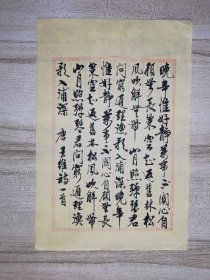 晚年惟好靜萬事不關心自
顧無長策空知返舊林松
風吹解帶山月照彈琴君
問窮通理漁歌入浦深晚年
惟好靜萬事不關心自顧無長
策空知返舊林松風吹解帶
山月照彈琴君問窮通理漁
歌入浦深 唐王維詩一首